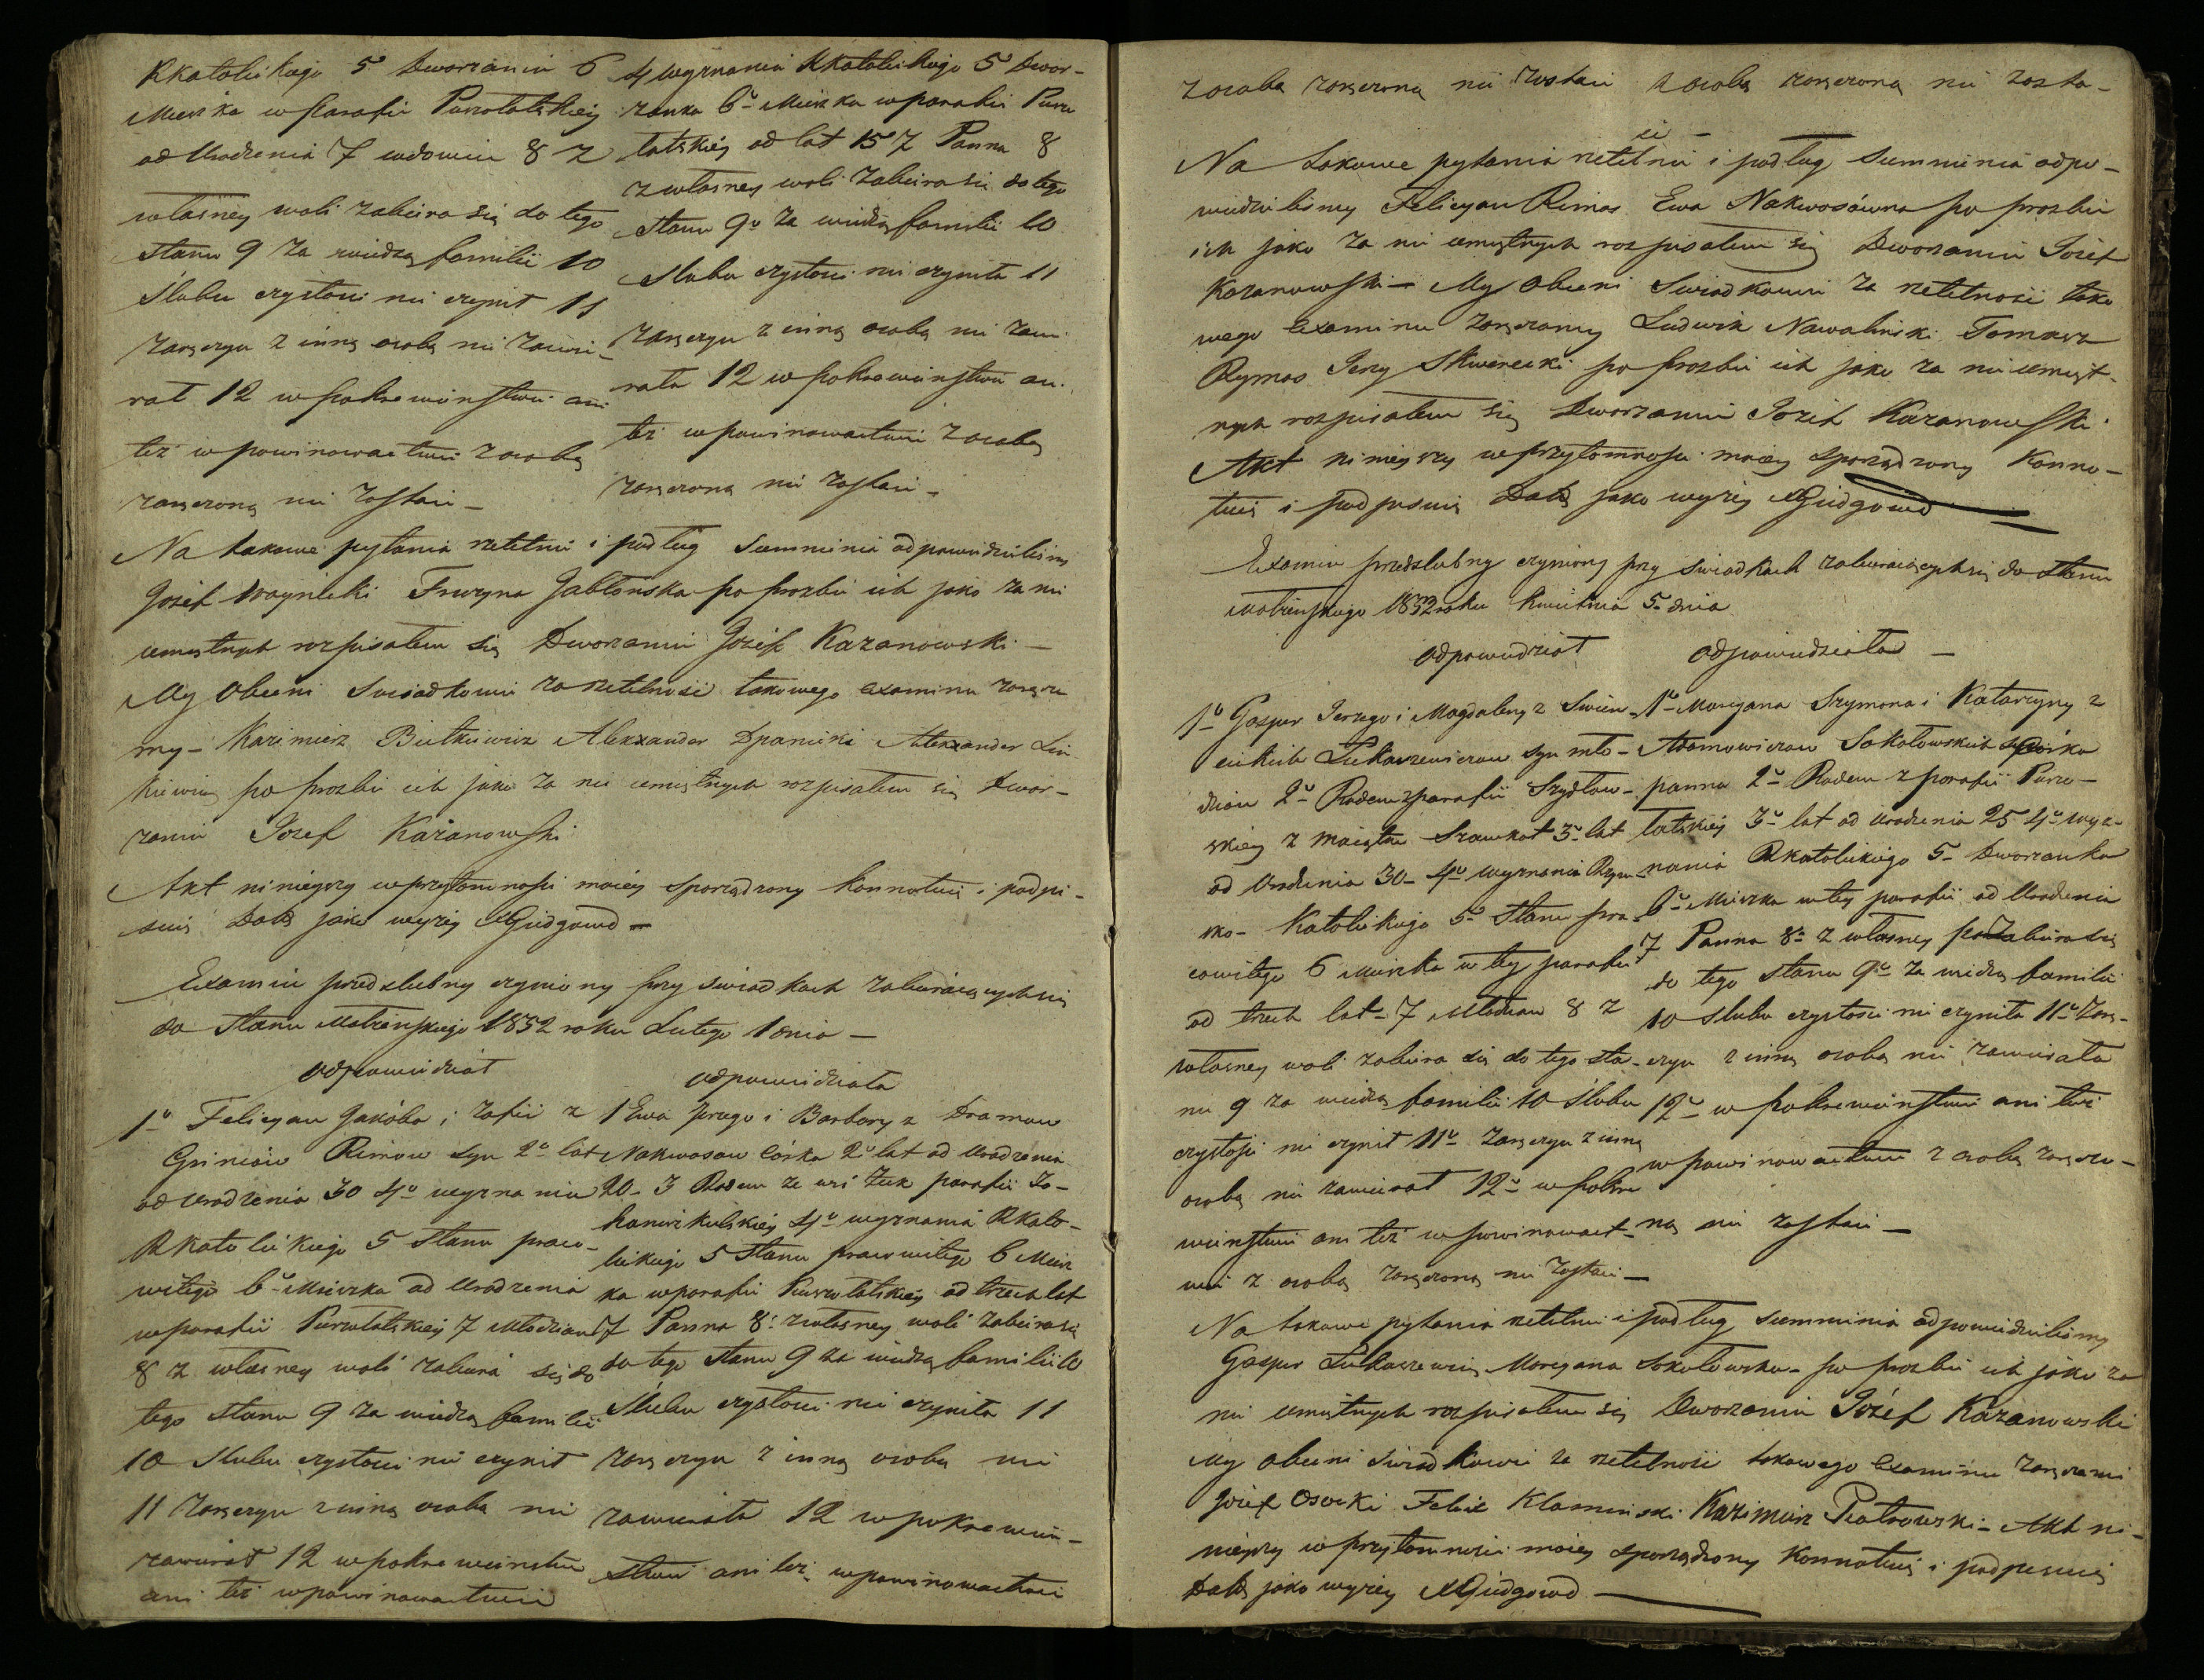 Rkatolickiego 5 Dworzanin 6
Mieszka w Parafii Purwtolskiey
od Urodzenia 7 wdowiec 8 z
własney woli zabiera się do tego
Stanu 9 za wiedzą familii 10
Ślubu czystosci nie czynił 11
zaręczyn z inną osobą nie zawie-
rał 12 w pokrewienstwie ani
też w powinowactwie z osobą
zaręczoną nie zostaie _
4 wyznania Rkatolickiego 5 Dwor-
zanka 6° Mieszka w parafii Purw
tolskiey od lat 15 7 Panna 8
z własney woli zabiera sie do tego
Stanu 9° za wiedzą familii 10
Slubu czystosci nie czyniła 11
zaręczyn z inną osobą nie zawie
rała 12 w pokrewienstwie ani
też w powinowactwie z osobą
zaręczoną nie zostaie _
Na takowe pytania rzetelnie i podług Summienia odpowiedzieliśmy
Jozef Fruzyna Jabłonska po prozbie ich jako za nie
umiętnych rozpisałem się Dworzanin Jozef Kazanowski _
My Obecni Swiadkowie za rzetelność takowego examinu zaręcza
my _ Kazimierz Butkiewicz Alexander Alexander Lin
kiewicz po prozbie ich jako za nie umiętnych rozpisałem się Dwor-
zanin Jozef Kazanowski
Akt ninieyszy w przytomności moiey sporządzony konnotuię i podpi-
suię Datą jako wyżey Giedgowd _
Examin przedslubny czyniony przy swiadkach zabieraiących się
do Stanu Małżeńskiego 1832 roku Lutego 1 dnia _
odpowiedział
1° Felicyan Jakóba i Zofii z
Gpiniów Rimow syn 2° lat
od urodzenia 30 4° wyznania
Rkatolickiego 5 Stanu praco-
witego 6° Mieszka od Urodzenia
w parafii Purwtolskiey 7 Młodzian
8 z własney woli zabiera się do
tego Stanu 9 za wiedzą familii
10 Slubu czystosci nie czynił
11 Zaręczyn z inną osobą nie
zawierał 12 w pokrewienstwie
ani też w powinowactwie
odpowiedziała
1 Ewa Jerzego i Barbary z Dramow
Nakwasow córka 2° lat od Urodzenia
20 _ 3 Rodem ze wsi Żuk parafii Jo-
haniszkielskiey 4° wyznania Rkato-
lickiego 5 Stanu pracowitego 6 Miesz
ka w parafii Purwtolskiey od trzech lat
7 Panna 8° z własney woli zabiera się
do tego Stanu 9 za wiedzą familii 10
Slubu czystosci nie czyniła 11
zaręczyn z inną osobą nie
zawierała 12 w pokrewien-
stwie ani też w powinowactwie
z osobą zaręczoną nie zostaie
z osobą zaręczoną nie zosta-
ie _
Na takowe pytania rzetelnie i podług Summienia odpo-
wiedzielismy Felicyan Rimos Ewa Nakwosówna po prozbie
ich jako za nie umiętnych rozpisałem się Dworzanin Jozef
Kazanowski _ My Obecni Swiadkowie za rzetelność tako
wego Examinu zaręczamy Ludwik Nawaliński Tomasz
Rymas Jerzy Skwerecki po prozbie ich jako za nie umięt-
nych rozpisałem się Dworzanin Jozef Kazanowski
Akt ninieyszy w przytomnosci moiey sporządzony Konno-
tuię i podpisuię Datą jako wyżey Giedgowd
Examin przedslubny czyniony przy swiadkach zabieraiących się do Stanu
Małżeńskiego 1832 roku Kwietnia 5 dnia
odpowiedział
1° Gasper Jerzego i Magdaleny z Swien-
cickich Łukaszewiczow syn mło-
dzian 2° Rodem z parafii Szydłow-
skiey z maiątku Szawkot 3° lat
od Urodzenia 30 _ 4° wyznania Rzym-
sko _ Katolickiego 5° Stanu pra-
cowitego 6 Mieszka w tey parafii
od trzech lat _ 7 Młodzian 8 z
własney woli zabiera się do tego sta-
nu 9 za wiedzą familii 10 Slubu
czystosci nie czynił 11° zaręczyn z inną
osobą nie zawierał 12° w pokre
wienstwie ani też w powinowact-
wie z osobą zaręczoną nie zostaie _
odpowiedziała _
1° Maryana Szymona i Katarzyny z
Adamowiczow Sokołowskich córka
panna 2° Rodem z parafii Purw-
tolskiey 3° lat od urodzenia 25 4° wyz-
nania Rkatolickiego 5 _ Dworzanka
6° Mieszka w tey parafii od Urodzenia
7 Panna 8° z własney zabiera sie
do tego Stanu 9° za wiedzą familii
10 Slubu czystosci nie czyniła 11° Zarę-
czyn z inną osobą nie zawierała
12° w pokrewienstwie ani też
w powinowactwie z osobą zaręczo-
ną nie zostaie _
Na takowe pytania rzetelnie i podług summienia odpowiedzielismy
Gasper Łukaszewicz Maryana Sokołowska _ po prozbie ich jako za
nie umiętnych rozpisałem się Dworzanin Józef Kazanowski
My obecni swiadkowie za rzetelność takowego Examinu zaręczami
Jozef Osocki Felix Klaminski Kazimierz Piotrowski _ Akt ni-
nieyszy w przytomności moiey sporządzony Konnotuię i podpisuię
Datą jako wyżey Giedgowd